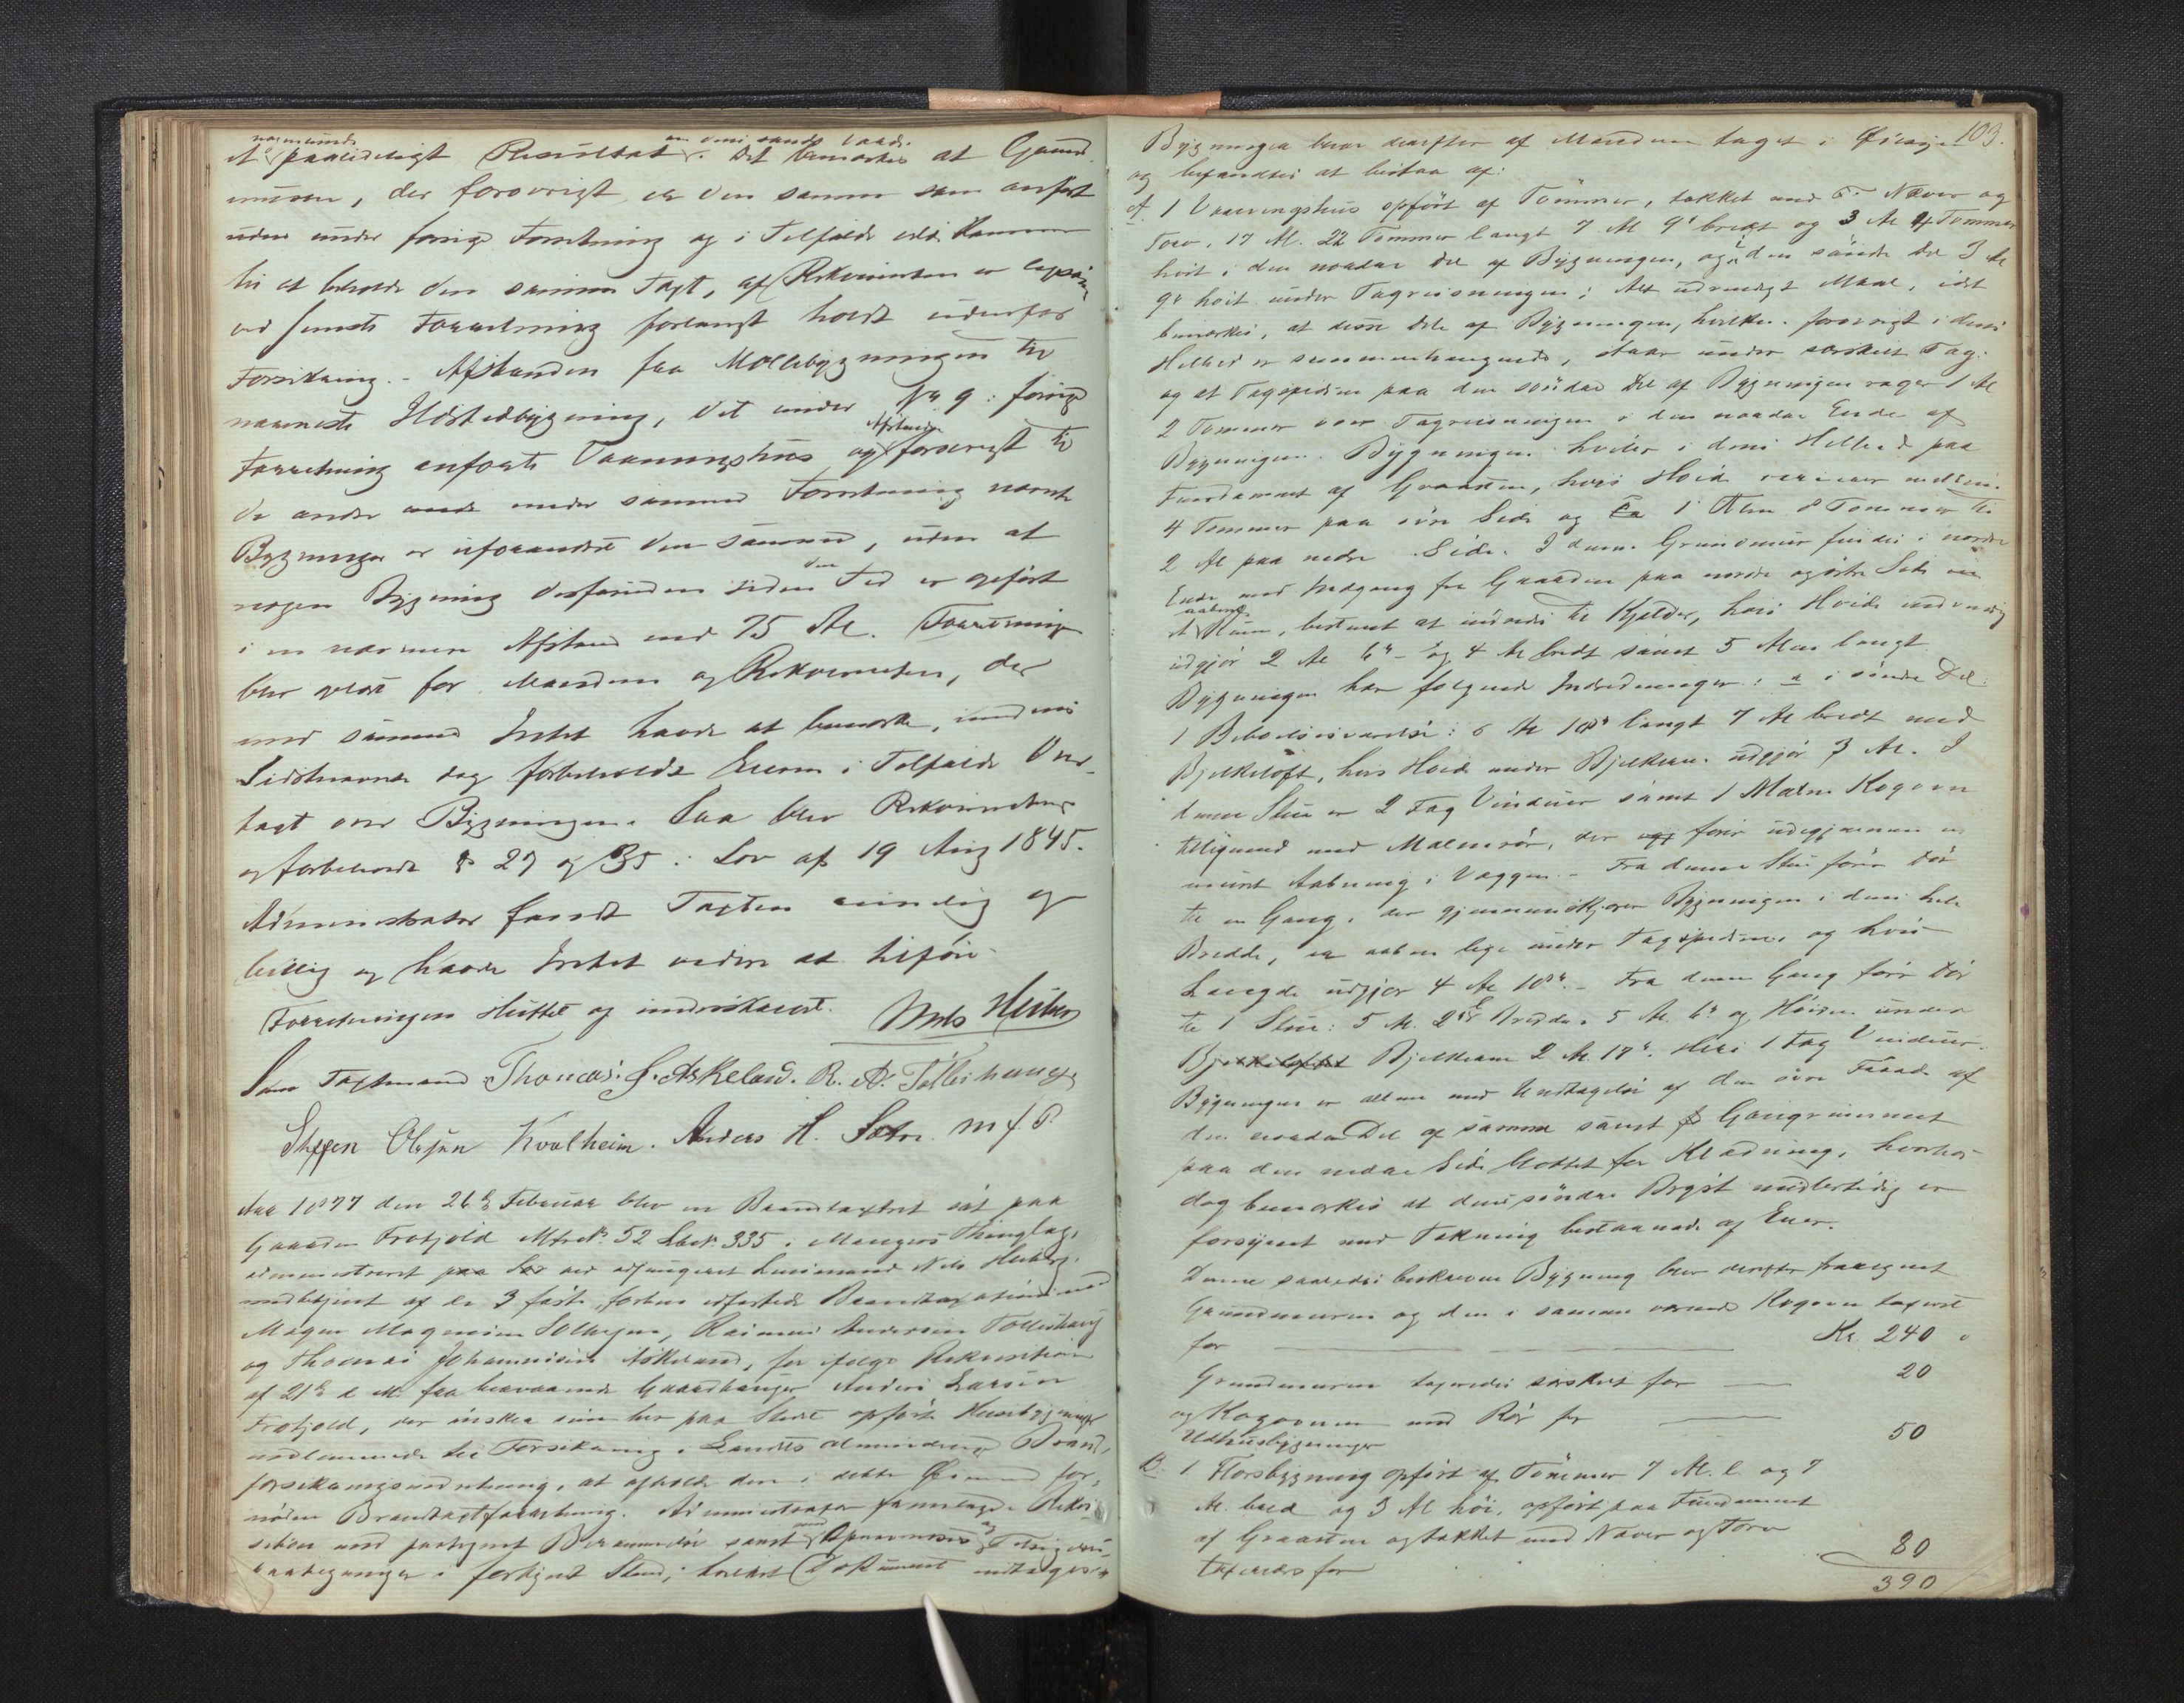 nogenlunde om dens sande Værdi
et paalideligt Resultat. Det bemærkes at Grund-
muren, der forøvrigt er den samme som anført
under forrige Forretning og i Tilfælde vilde komme
til at beholde den samme Taxt, af Rekvirenten er
ved seneste Forretning forlangt holdt udenfor
Forsikring. - Afstanden fra Møllebygningen til
nærmeste Ildstedbygning, det under No 9 i forrige
Forretning anførte Vaaningshus og Afstanden forøvrigt til
de andre under samme Forretning nævnte
Bygninger er uforandret den samme, uden at
nogen Bygning desforuden siden den Tid er opført
i en nærmere Afstand end 75 Al. Forretningen
blev oplæst for Mændene og Rekvirenten, der
mod samme Intet havde at bemærke, imedens
Sidstnævnte dog forbeholdt Evern i Tilfælde Over-
taxt over Bygningen. Saa blev Rekvirenten
og forbeholdt § 27 og 35 i Lov af 19 Aug 1845.
Administrator fandt Taxten rimelig og
billig og havde Intet videre at tilføie
Forretningen sluttet og underskrevet. Nils Heiberg
Som Taxtmænd Thomas J. Askeland. R. A. Tølleshaug
Steffen Olsen Kvalheim. Anders H. Sætre m. f. P.
Aar 1877 den 26de Februar blev en Brandtaxtret sat paa
Gaarden Frotjold Mtr No 52 Lbn 335 i Mangers Thinglag,
administreret ved adjungeret Lensmand Nils Heiberg,
medbetjent af de 3 faste, forhen edfæstede Brandtaxationsmænd
Mogen Mogensen Solheim, Rasmus Andersen Tølleshaug
og Thomas Johannesen Askeland, for ifølge Rekvisition
af 21de d. M. fra herværende Gaardbruger Anders Larsen
Frotjold, der ønsker sine her paa Stedet opførte Husebygninger
indlemmede til Forsikring i Landets almindelige Brand-
forsikringsindretning, at afholde den i dette Øiemed for-
nødne Brandtaxtforretning. Administrator fremlagde Rekvi-
sition med paategnet Berammelse samt med og
paategninger i forkyndt Stand, hvilket Dokument indtages:
103.
Bygningen blev derefter af Mændene taget i Øiesyn
og befandtes at bestaa af:
A. 1 Vaaningshus opført af Tømmer, tækket med Næver og
Torv, 17 Al. 22 Tommer langt 7 Al 9" bredt og 3 Al 4 Tommer
høit i den nordre Del af Bygningen, og i den søndre Del 3 Al
9" høit under Tagreisningen; Alt udvendigt Maal, idet
bemærkes, at disse Dele af Bygningen, hvilken forøvrigt i dens
Helhed er sammenhængende, staar under særskilt Tag
og at Tagspidsen paa den søndre Del af Bygningen rager 1 Al
2 Tommer over Tagreisningen i den nordre Ende af
Bygningen. Bygningen hviler i dens Helhed paa
Fundament af Graasten, hvis Høide varierer mellem
4 Tommer paa øvre Side og 1 Alen 8 Tommer til
2 Al paa nedre Side. I denne Grundmur findes i nordre
Ende med Indgang fra Gaarden paa nordre og østre Side
et aabent Rum, bestemt at indredes til Kjelder, hvis Høide indvendig
udgjør 2 Al 6" og 4 Al bredt samt 5 Alen langt
Bygningen har følgende Indredninger: a i søndre Del:
1 Beboelsesværelse: 6 Al 18" langt 7 Al bredt med
Bjelkeloft, hvis Høide under Bjelkerne udgjør 3 Al. I
denne Stue er 2 Fag Vinduer samt 1 Malm Kogovn
tilligemed med Malmrør, der fører udigjennem en
muret Aabning i Væggen. - Fra denne Stue fører Dør
til en Gang, der gjennemskjærer Bygningen i dens hele
Bredde, er aaben lige under Tagspidsen, og hvis
Længde udgjør 4 Al 18". - Fra denne Gang fører Dør
til 1 Stue: 5 Al. 2" Bredden 5 Al. 6" og Høiden under
Bjelkeloftet Bjelkerne 2 Al 17". Heri 1 Fag Vinduer.
Bygningen er alene med Undtagelse af den øvre Facade af
den nordre Del af samme samt Gangrummet
paa den nedre Side blottet for Klædning, hvorhos
dog bemærkes at dens søndre Bryst midlertidig er
forsynet med Tækning bestaaende af Ener.
Denne saaledes beskrevne Bygning blev derefter fraregnet
Grundmuren og den i samme værende Kogovn taxeret
for — Kr. 240 "
Grundmuren taxeredes særskilt for — 20
og Kogovnen med Rør for — 50
Udhusbygninger
B. 1 Florsbygning opført af Tømmer 7 Al. l. og 7
Al. bred og 3 Al høi, opført paa Fundament
af Graasten og tækket med Næver og Torv
taxeredes for 80
390